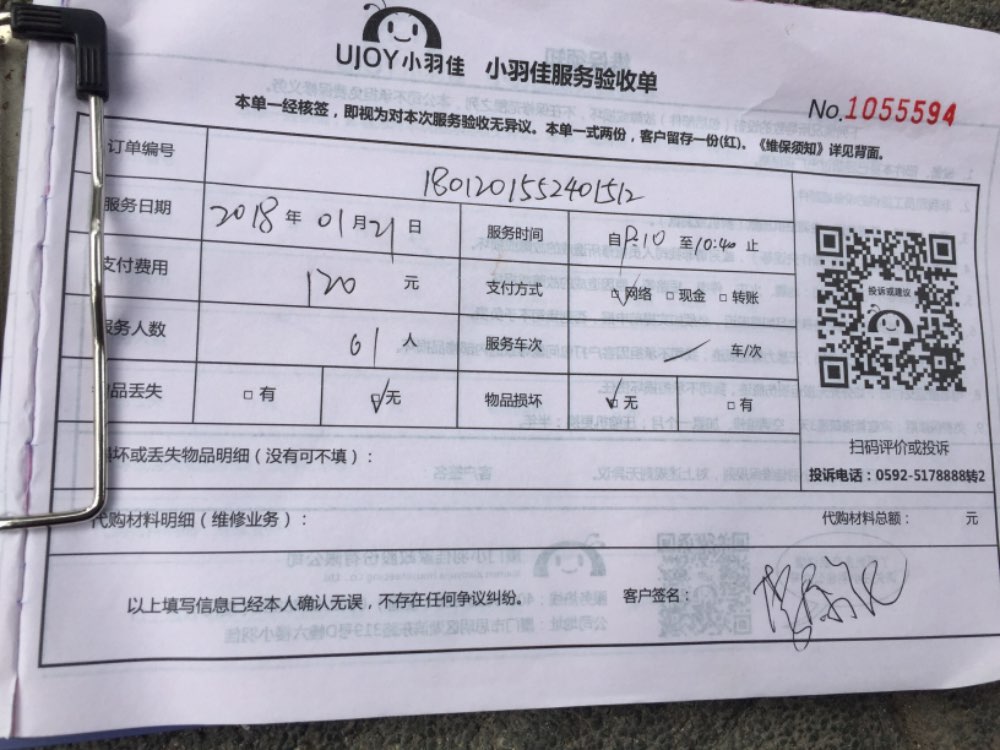 UJOY小羽佳 小羽佳服务验收单
No.1055594
本单一经核签，即视为对本次服务验收无异议。本单一式两份，客户留存一份(红)。《维保须知》详见背面。
订单编号 1801201552401512
服务日期 2018 年 01 月 21 日 服务时间 自 8:10 至 10:40 止
支付费用 120 元 支付方式 ☑网络 □现金 □转账
服务人数 01 人 服务车次 / 车/次
品丢失 □有 ☑无 物品损坏 ☑无 □有
投诉或建议
扫码评价或投诉
投诉电话：0592-5178888转2
坏或丢失物品明细（没有可不填）：
代购材料明细（维修业务）： 代购材料总额： 元
以上填写信息已经本人确认无误，不存在任何争议纠纷。 客户签名：